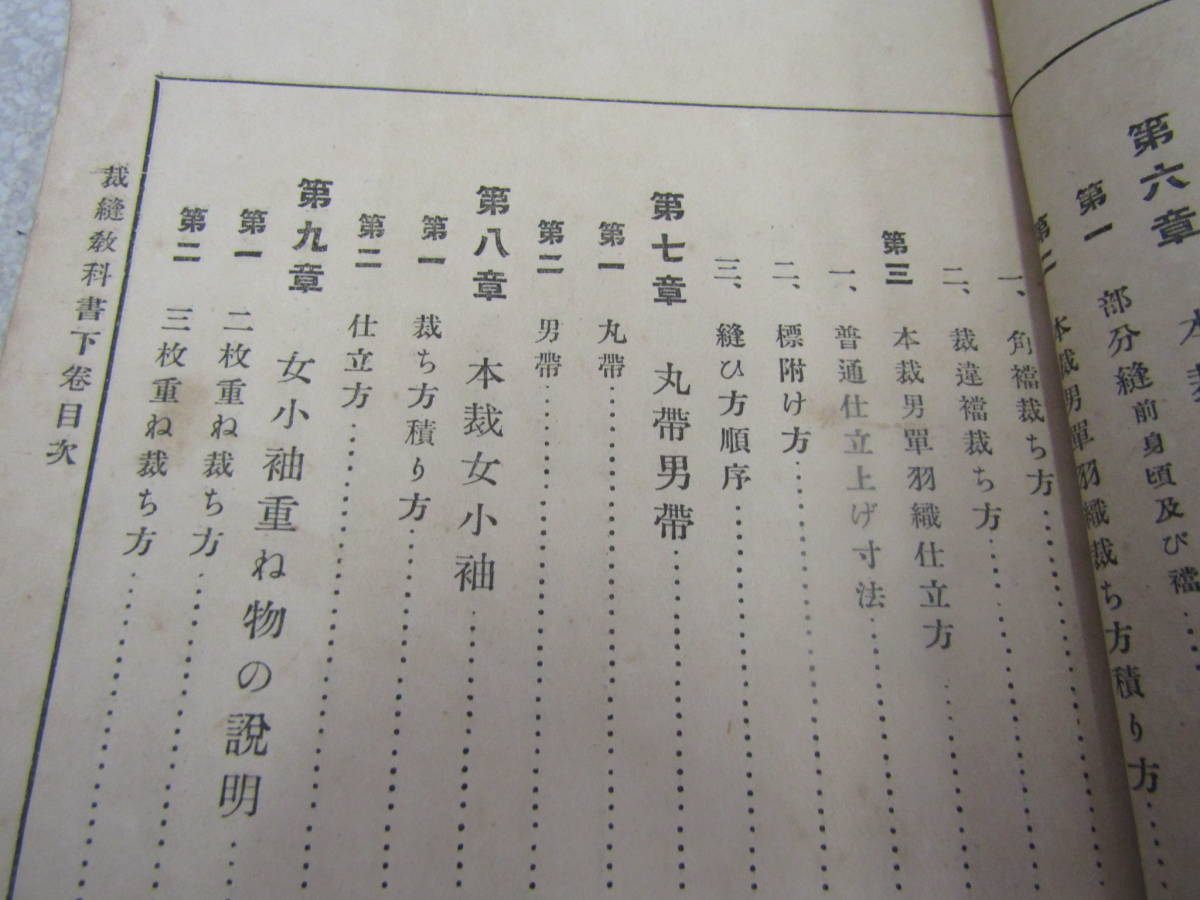 第六章
第一 部分縫 前身頃及び襠……
第二 本裁男單羽織裁ち方積り方……
一、角襠裁ち方……
二、裁違襠裁ち方……
第三 本裁男單羽織仕立方……
一、普通仕立上げ寸法……
二、標附け方……
三、縫ひ方順序……
第七章 丸帶男帶……
第一 丸帶……
第二 男帶……
第八章 本裁女小袖……
第一 裁ち方積り方……
第二 仕立方……
第九章 女小袖重ね物の說明……
第一 二枚重ね裁ち方……
第二 三枚重ね裁ち方……
裁縫敎科書下卷目次